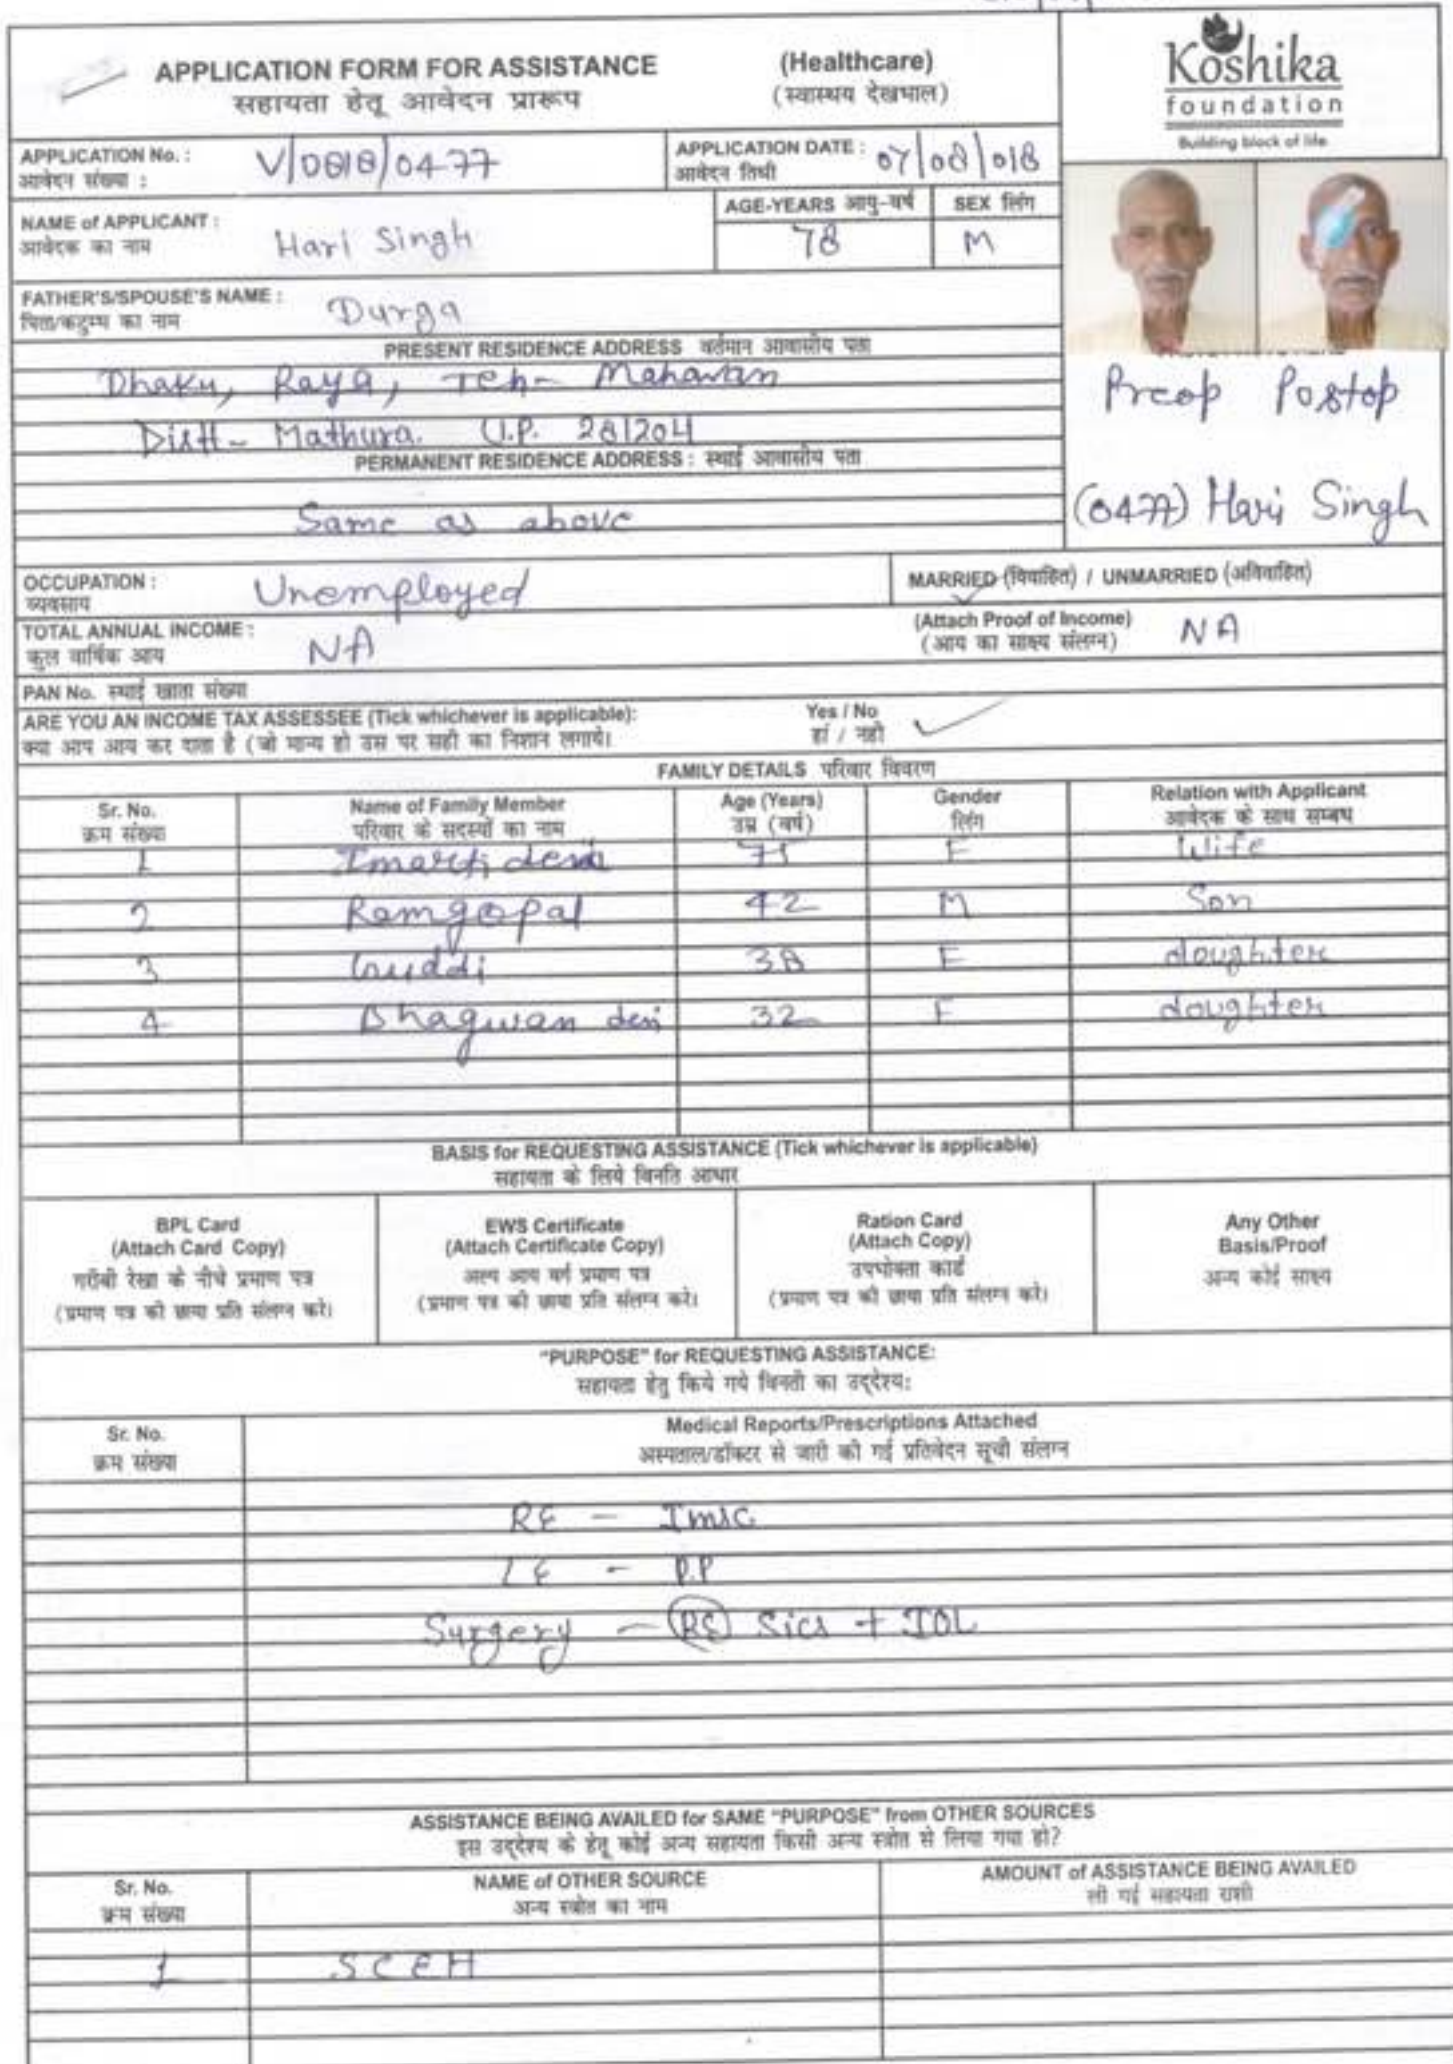 APPLICATION FORM FOR ASSISTANCE
सहायता हेतू आवेदन प्रारूप
(Healthcare)
(स्वास्थय देखभाल)
Koshika
foundation
Building block of life
APPLICATION No. :
आवेदन संख्या :
V/0818/0477
APPLICATION DATE :
आवेदन तिथी
07/08/018
NAME of APPLICANT :
आवेदक का नाम
Hari Singh
AGE-YEARS आयु-वर्ष
78
SEX लिंग
M
FATHER'S/SPOUSE'S NAME :
पिता/कटुम्ब का नाम
Durga
PRESENT RESIDENCE ADDRESS वर्तमान आवासीय पता
Dhaku, Raya, Teh- Mahavan
Distt- Mathura. U.P. 281204
PERMANENT RESIDENCE ADDRESS : स्थाई आवासीय पता
Same as above
Preop Postop
(0477) Hari Singh
OCCUPATION :
व्यवसाय
Unemployed
MARRIED (विवाहित) / UNMARRIED (अविवाहित)
TOTAL ANNUAL INCOME :
कुल वार्षिक आय
NA
(Attach Proof of Income)
(आय का साक्ष्य संलग्न)
NA
PAN No. स्थाई खाता संख्या
ARE YOU AN INCOME TAX ASSESSEE (Tick whichever is applicable):
क्या आप आय कर दाता है (जो मान्य हो उस पर सही का निशान लगाये।
Yes / No
हां / नही
FAMILY DETAILS परिवार विवरण
Sr. No.
क्रम संख्या
Name of Family Member
परिवार के सदस्यों का नाम
Age (Years)
उम्र (वर्ष)
Gender
लिंग
Relation with Applicant
आवेदक के साथ सम्बध
1 Imarti devi 71 F Wife
2 Ramgopal 42 M Son
3 Guddi 38 F doughter
4 Bhagwan devi 32 F doughter
BASIS for REQUESTING ASSISTANCE (Tick whichever is applicable)
सहायता के लिये विनति आधार
BPL Card
(Attach Card Copy)
गरीबी रेखा के नीचे प्रमाण पत्र
(प्रमाण पत्र की छाया प्रति संलग्न करे।
EWS Certificate
(Attach Certificate Copy)
अल्प आय वर्ग प्रमाण पत्र
(प्रमाण पत्र की छाया प्रति संलग्न करे।
Ration Card
(Attach Copy)
उपभोक्ता कार्ड
(प्रमाण पत्र की छाया प्रति संलग्न करे।
Any Other
Basis/Proof
अन्य कोई साक्ष्य
"PURPOSE" for REQUESTING ASSISTANCE:
सहायता हेतु किये गये विनती का उद्देश्य:
Sr. No.
क्रम संख्या
Medical Reports/Prescriptions Attached
अस्पताल/डॉक्टर से जारी की गई प्रतिवेदन सूची संलग्न
RE - Imsc
LE - P.P
Surgery - RE Sics + IOL
ASSISTANCE BEING AVAILED for SAME "PURPOSE" from OTHER SOURCES
इस उद्देश्य के हेतू कोई अन्य सहायता किसी अन्य स्त्रोत से लिया गया हो?
Sr. No.
क्रम संख्या
NAME of OTHER SOURCE
अन्य स्त्रोत का नाम
AMOUNT of ASSISTANCE BEING AVAILED
ली गई सहायता राशी
1 SCEH